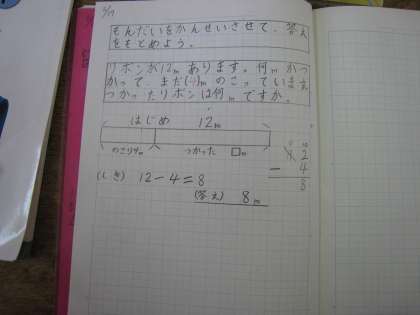 5/17
もんだいをかんせいさせて、答え
をもとめよう。
リボンが12mあります。何mかつ
かって、まだ(4)mのこっています。
つかったリボンは何mですか。
はじめ 12m
のこり4m つかった □m
(しき) 12-4=8
(答え) 8m
10
1 2
- 4
8